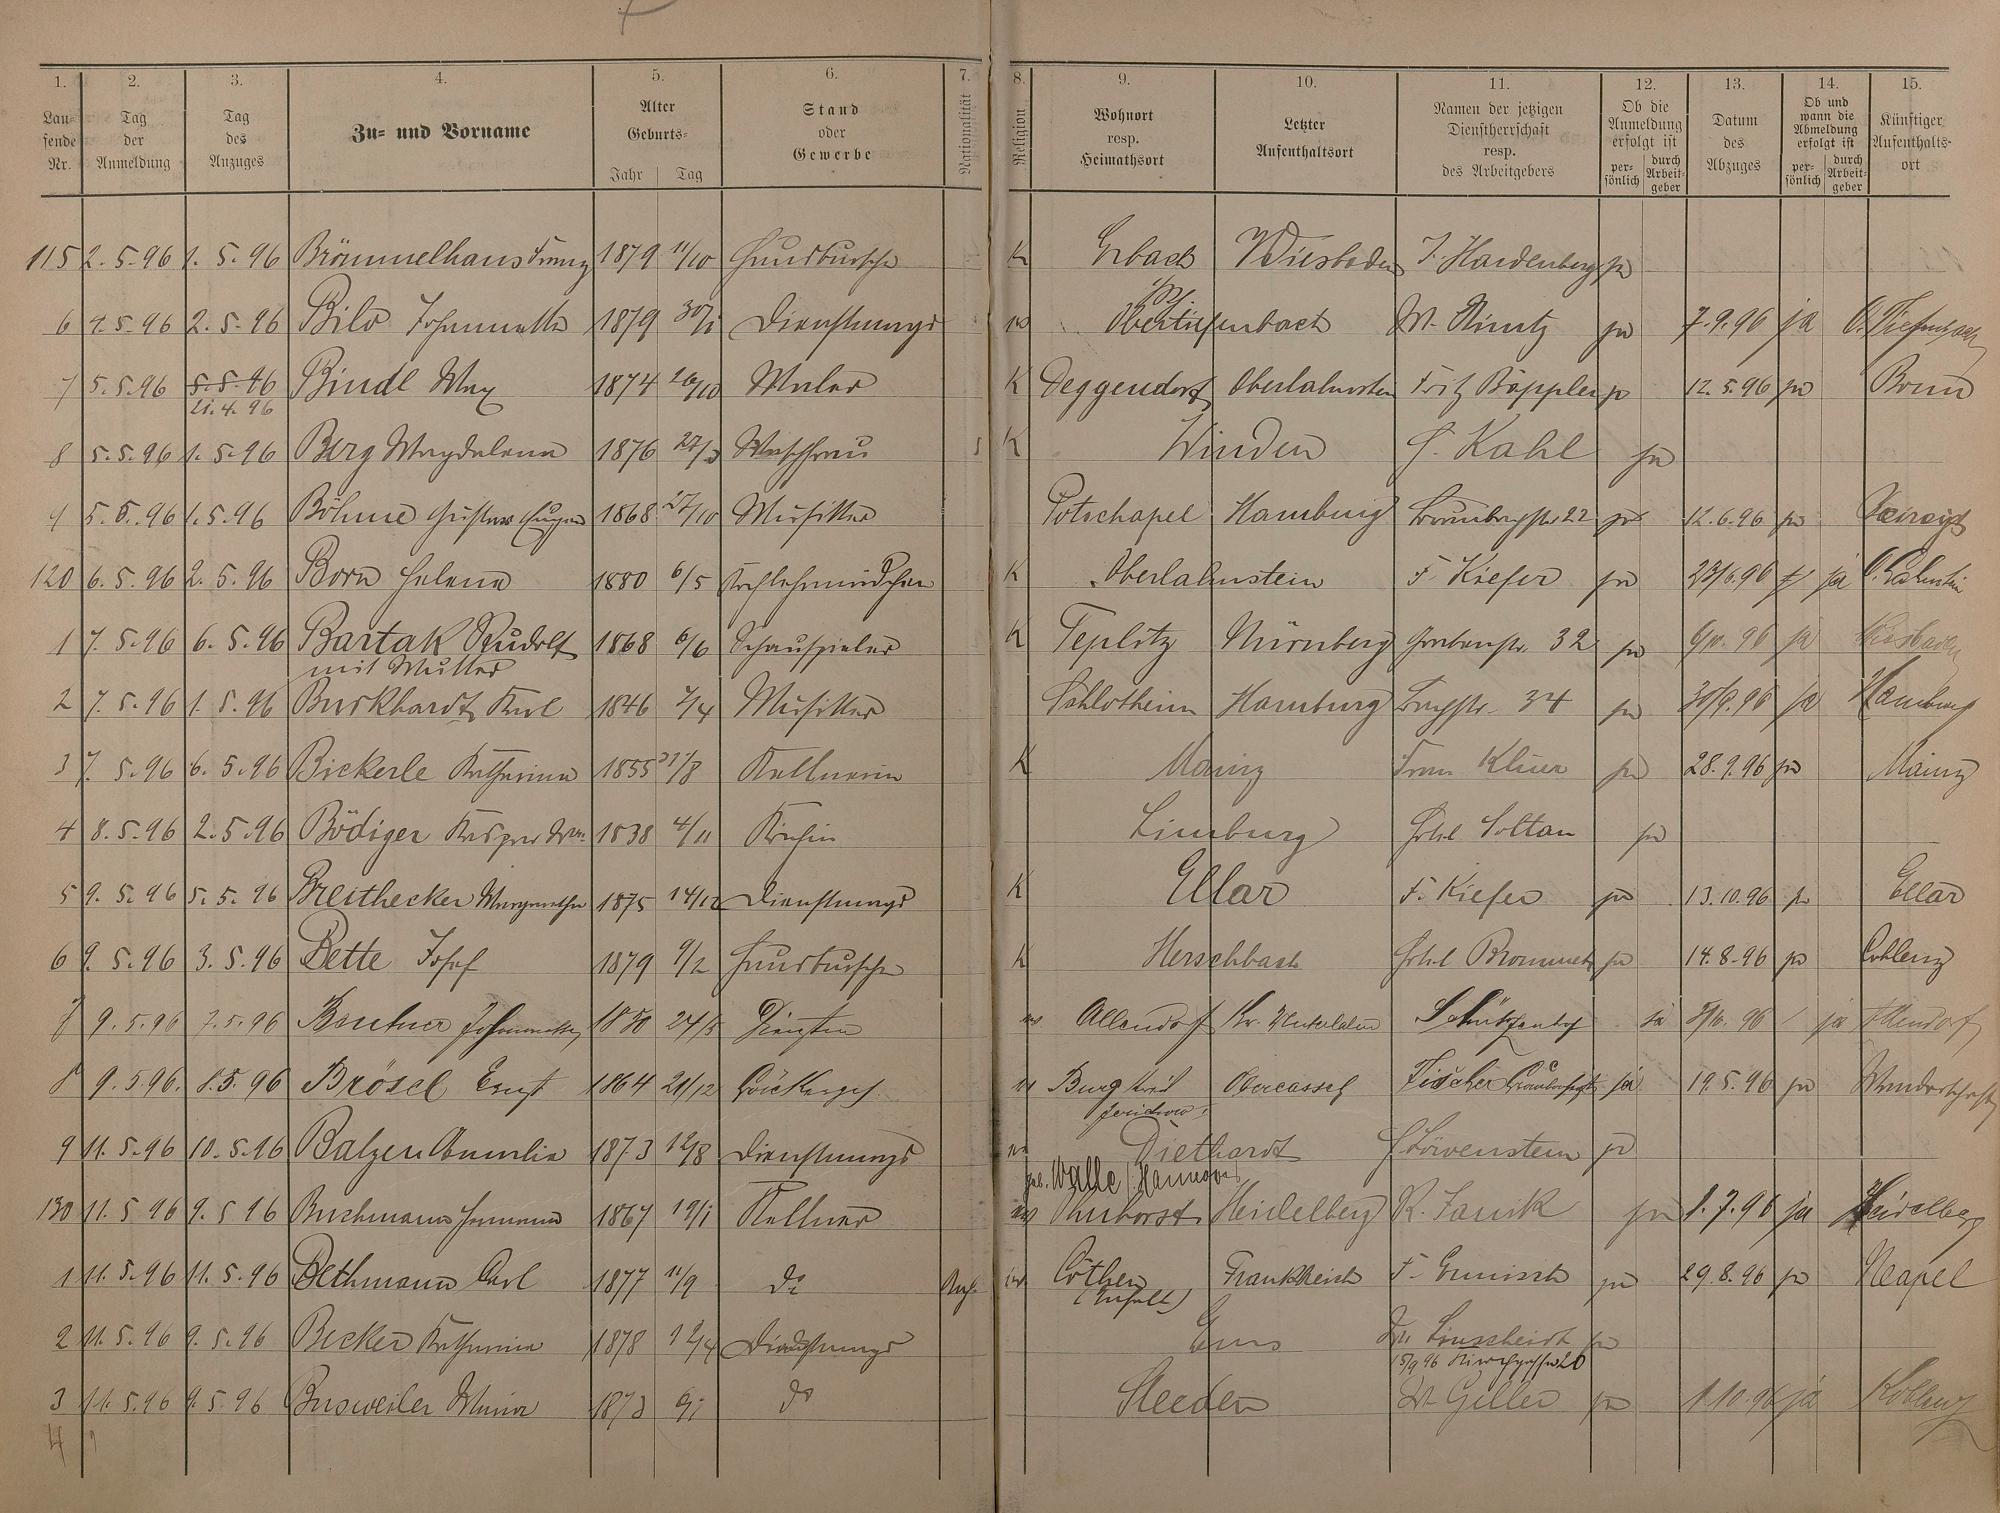 1. 2. 3. 4. 5. 6. 7. 8. 9. 10. 11. 12. 13. 14. 15.
Laufende Nr. Tag der Anmeldung Tag des Anzuges Zu- und Vorname Alter Geburts- Jahr Tag Stand oder Gewerbe Nationalität Religion Wohnort resp. Heimathsort Letzter Aufenthaltsort Namen der jetzigen Dienstherrschaft resp. des Arbeitgebers Ob die Anmeldung erfolgt ist persönlich durch Arbeitgeber Datum des Abzuges Ob und wann die Abmeldung erfolgt ist persönlich durch Arbeitgeber Künftiger Aufenthaltsort
115 2.5.96 1.5.96 Brömmelhaus Franz 1879 11/10 Hausbursche K Erbach Wiesbaden J. Hardenberg ja
6 4.5.96 2.5.96 Bilo Johannette 1879 30/1 Dienstmagd Obertiefenbach ja 7.9.96 ja O. Tiefenbach
7 5.5.96 5.5.96 Bindl Max 1874 Maler K Deggendorf Oberlahnstein Fritz Böppler ja 12.5.96 ja Bonn
21.4.96
8 5.5.96 1.5.96 Berg Magdalena 1876 27/3 Waschfrau K Winden H. Kahl ja
9 5.5.96 1.5.96 Böhme Gustav Eugen 1868 27/10 Musiker Potschapel Hamburg 22 ja 12.6.96 ja
120 6.5.96 2.5.96 Born Helena 1880 6/5 Kochlehrmädchen K Oberlahnstein F. Kiefer ja 23/6.96 ja O. Lahnstein
1 7.5.96 6.5.96 Bartak Rudolf 1868 6/6 Schauspieler K Teplitz Nürnberg Grabenstr. 32 ja ja Wiesbaden
mit Mutter
2 7.5.96 1.5.96 Burkhardt Karl 1846 7/4 Musiker Schlotheim Hamburg 34 ja 30/9.96 ja Hamburg
3 7.5.96 6.5.96 Bickerle Katharina 1855 31/8 Kellnerin K Mainz Frau ja 28.9.96 ja Mainz
4 8.5.96 2.5.96 Bödiger Kaspar 1838 4/11 Köchin Limburg Hotel Soltau ja
5 9.5.96 5.5.96 Breithecker Margarethe 1875 14/12 Dienstmagd K Ellar F. Kiefer ja 13.10.96 ja Ellar
6 9.5.96 3.5.96 Bette Josef 1879 9/2 Hausbursche K Herschbach Hotel ja 14.8.96 ja Coblenz
7 9.5.96 7.5.96 Johannette 24/5 Allendorf Kr. Unterlahn Schützenhof ja ja Allendorf
8 9.5.96. 8.5.96 Brösel Ernst 1864 21/12 Burg Kreis Obercassel Fischer ja 19.5.96 ja Wanderschaft
Jerichow
9 11.5.96 10.5.96 Balzer Amalia 1873 12/8 Dienstmagd Diethardt Löwenstein ja
geb. Walle (Hannover)
130 11.5.96 9.5.96 Buchmann Hermann 1867 19/1 Kellner Heidelberg ja 1.7.96 ja Heidelberg
1 11.5.96 11.5.96 Bethmann Carl 1877 11/9 do Cöthen Frankreich ja 29.8.96 ja Neapel
(Anhalt)
2 11.5.96 9.5.96 Becker Katharina 1878 12/4 Dienstmagd Ems Linscheidt ja
15/9 96 20
3 11.5.96 9.5.96 Busweiler Maria 1873 do Steeden Giller ja 1.10.96 ja Koblenz
4